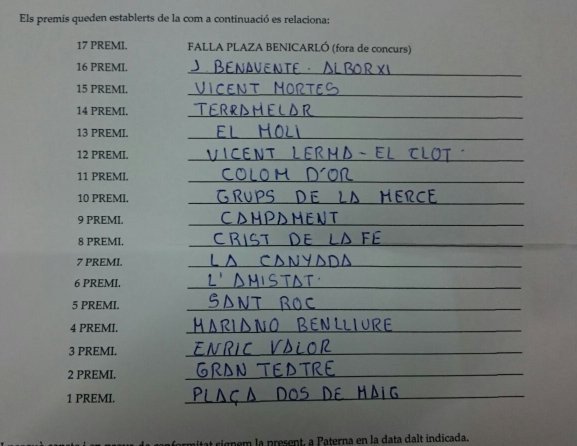 Els premis queden establerts de la com a continuació es relaciona:
17 PREMI. FALLA PLAZA BENICARLÓ (fora de concurs)
16 PREMI. J BENAVENTE - ALBORXI
15 PREMI. VICENT MORTES
14 PREMI. TERRAMELAR
13 PREMI. EL MOLI
12 PREMI. VICENT LERMA - EL CLOT.
11 PREMI. COLOM D'OR
10 PREMI. GRUPS DE LA MERCE
9 PREMI. CAMPAMENT
8 PREMI. CRIST DE LA FE
7 PREMI. LA CANYADA
6 PREMI. L'AMISTAT.
5 PREMI. SANT ROC
4 PREMI. MARIANO BENLLIURE
3 PREMI. ENRIC VALOR
2 PREMI. GRAN TEATRE
1 PREMI. PLAÇA DOS DE MAIG
conformitat signem la present, a Paterna en la data dalt indicada.